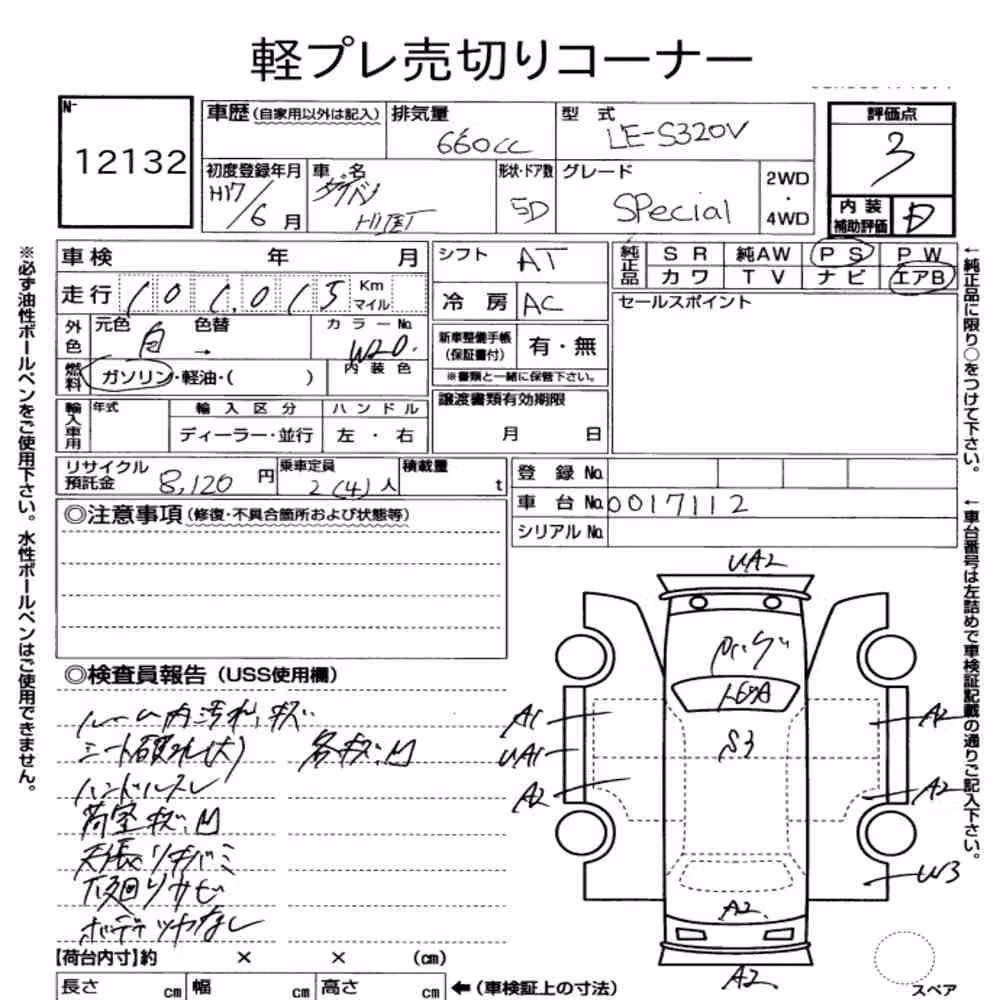 軽プレ売切りコーナー
N-
12132
車歴(自家用以外は記入)
排気量
660cc
型 式
LE-S320V
評価点
3
初度登録年月
H17/6月
車 名
ダイハツ
HIJET
形状・ドア数
5D
グレード
SPecial
2WD
・
4WD
内 装
補助評価
D
車検 年 月
走行 101,015 Km マイル
シフト AT
冷 房 AC
純正品
S R 純AW P S P W
カワ T V ナビ エアB
セールスポイント
外色
元色 白
色替 →
カラーNo.
W20.
内 装 色
燃料
ガソリン・軽油・( )
新車整備手帳
(保証書付)
有・無
※書類と一緒に保管下さい。
輸入車用
年式
輸 入 区 分
ディーラー・並行
ハ ン ド ル
左 ・ 右
譲渡書類有効期限
月 日
リサイクル
預託金 8,120 円
乗車定員
2(4)人
積載量
t
登 録 No.
車 台 No. 0017112
シリアル No.
◎注意事項(修復・不具合箇所および状態等)
◎検査員報告(USS使用欄)
ルーム内汚れ、キズ
シート破れ(大) 各キズ、凹
ハンドルスレ
荷室キズ、凹
天張りキバミ
下廻りサビ
ボデーツヤなし
UA2
S3
A1
UA1
A2
A2
A2
W3
A2
A2
【荷台内寸】約 × × (cm)
長さ cm 幅 cm 高さ cm
←(車検証上の寸法)
スペア
※必ず油性ボールペンをご使用下さい。水性ボールペンはご使用できません。
←純正品に限り○をつけて下さい。
←車台番号は左詰めで車検証記載の通りご記入下さい。